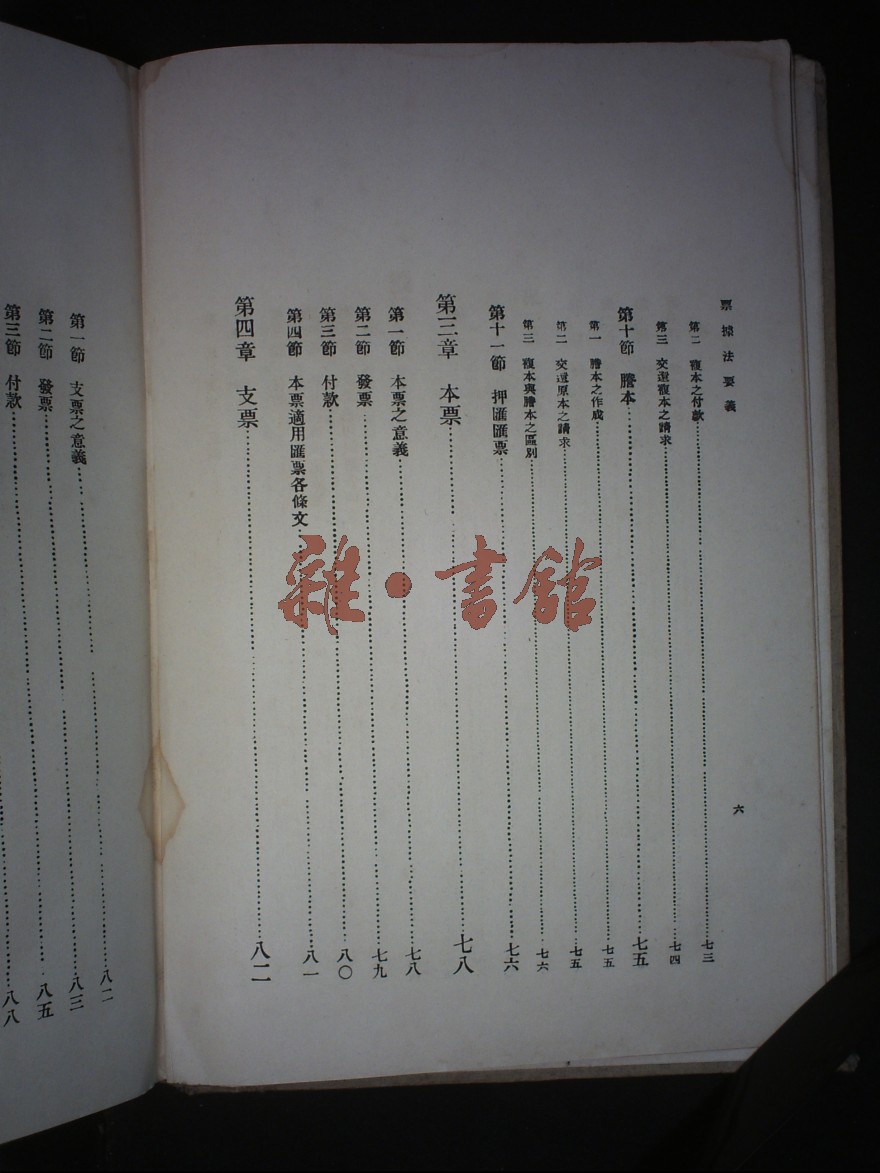 票據法要義
六
第二 複本之付款 七三
第三 交還複本之請求 七四
第十節 謄本 七五
第一 謄本之作成 七五
第二 交還原本之請求 七五
第三 複本與謄本之區別 七六
第十一節 押匯匯票 七六
第三章 本票 七八
第一節 本票之意義 七八
第二節 發票 七九
第三節 付款 八〇
第四節 本票適用匯票各條文 八一
第四章 支票 八二
第一節 支票之意義 八二
第二節 發票 八三
第三節 付款 八五
八八
雜·書館